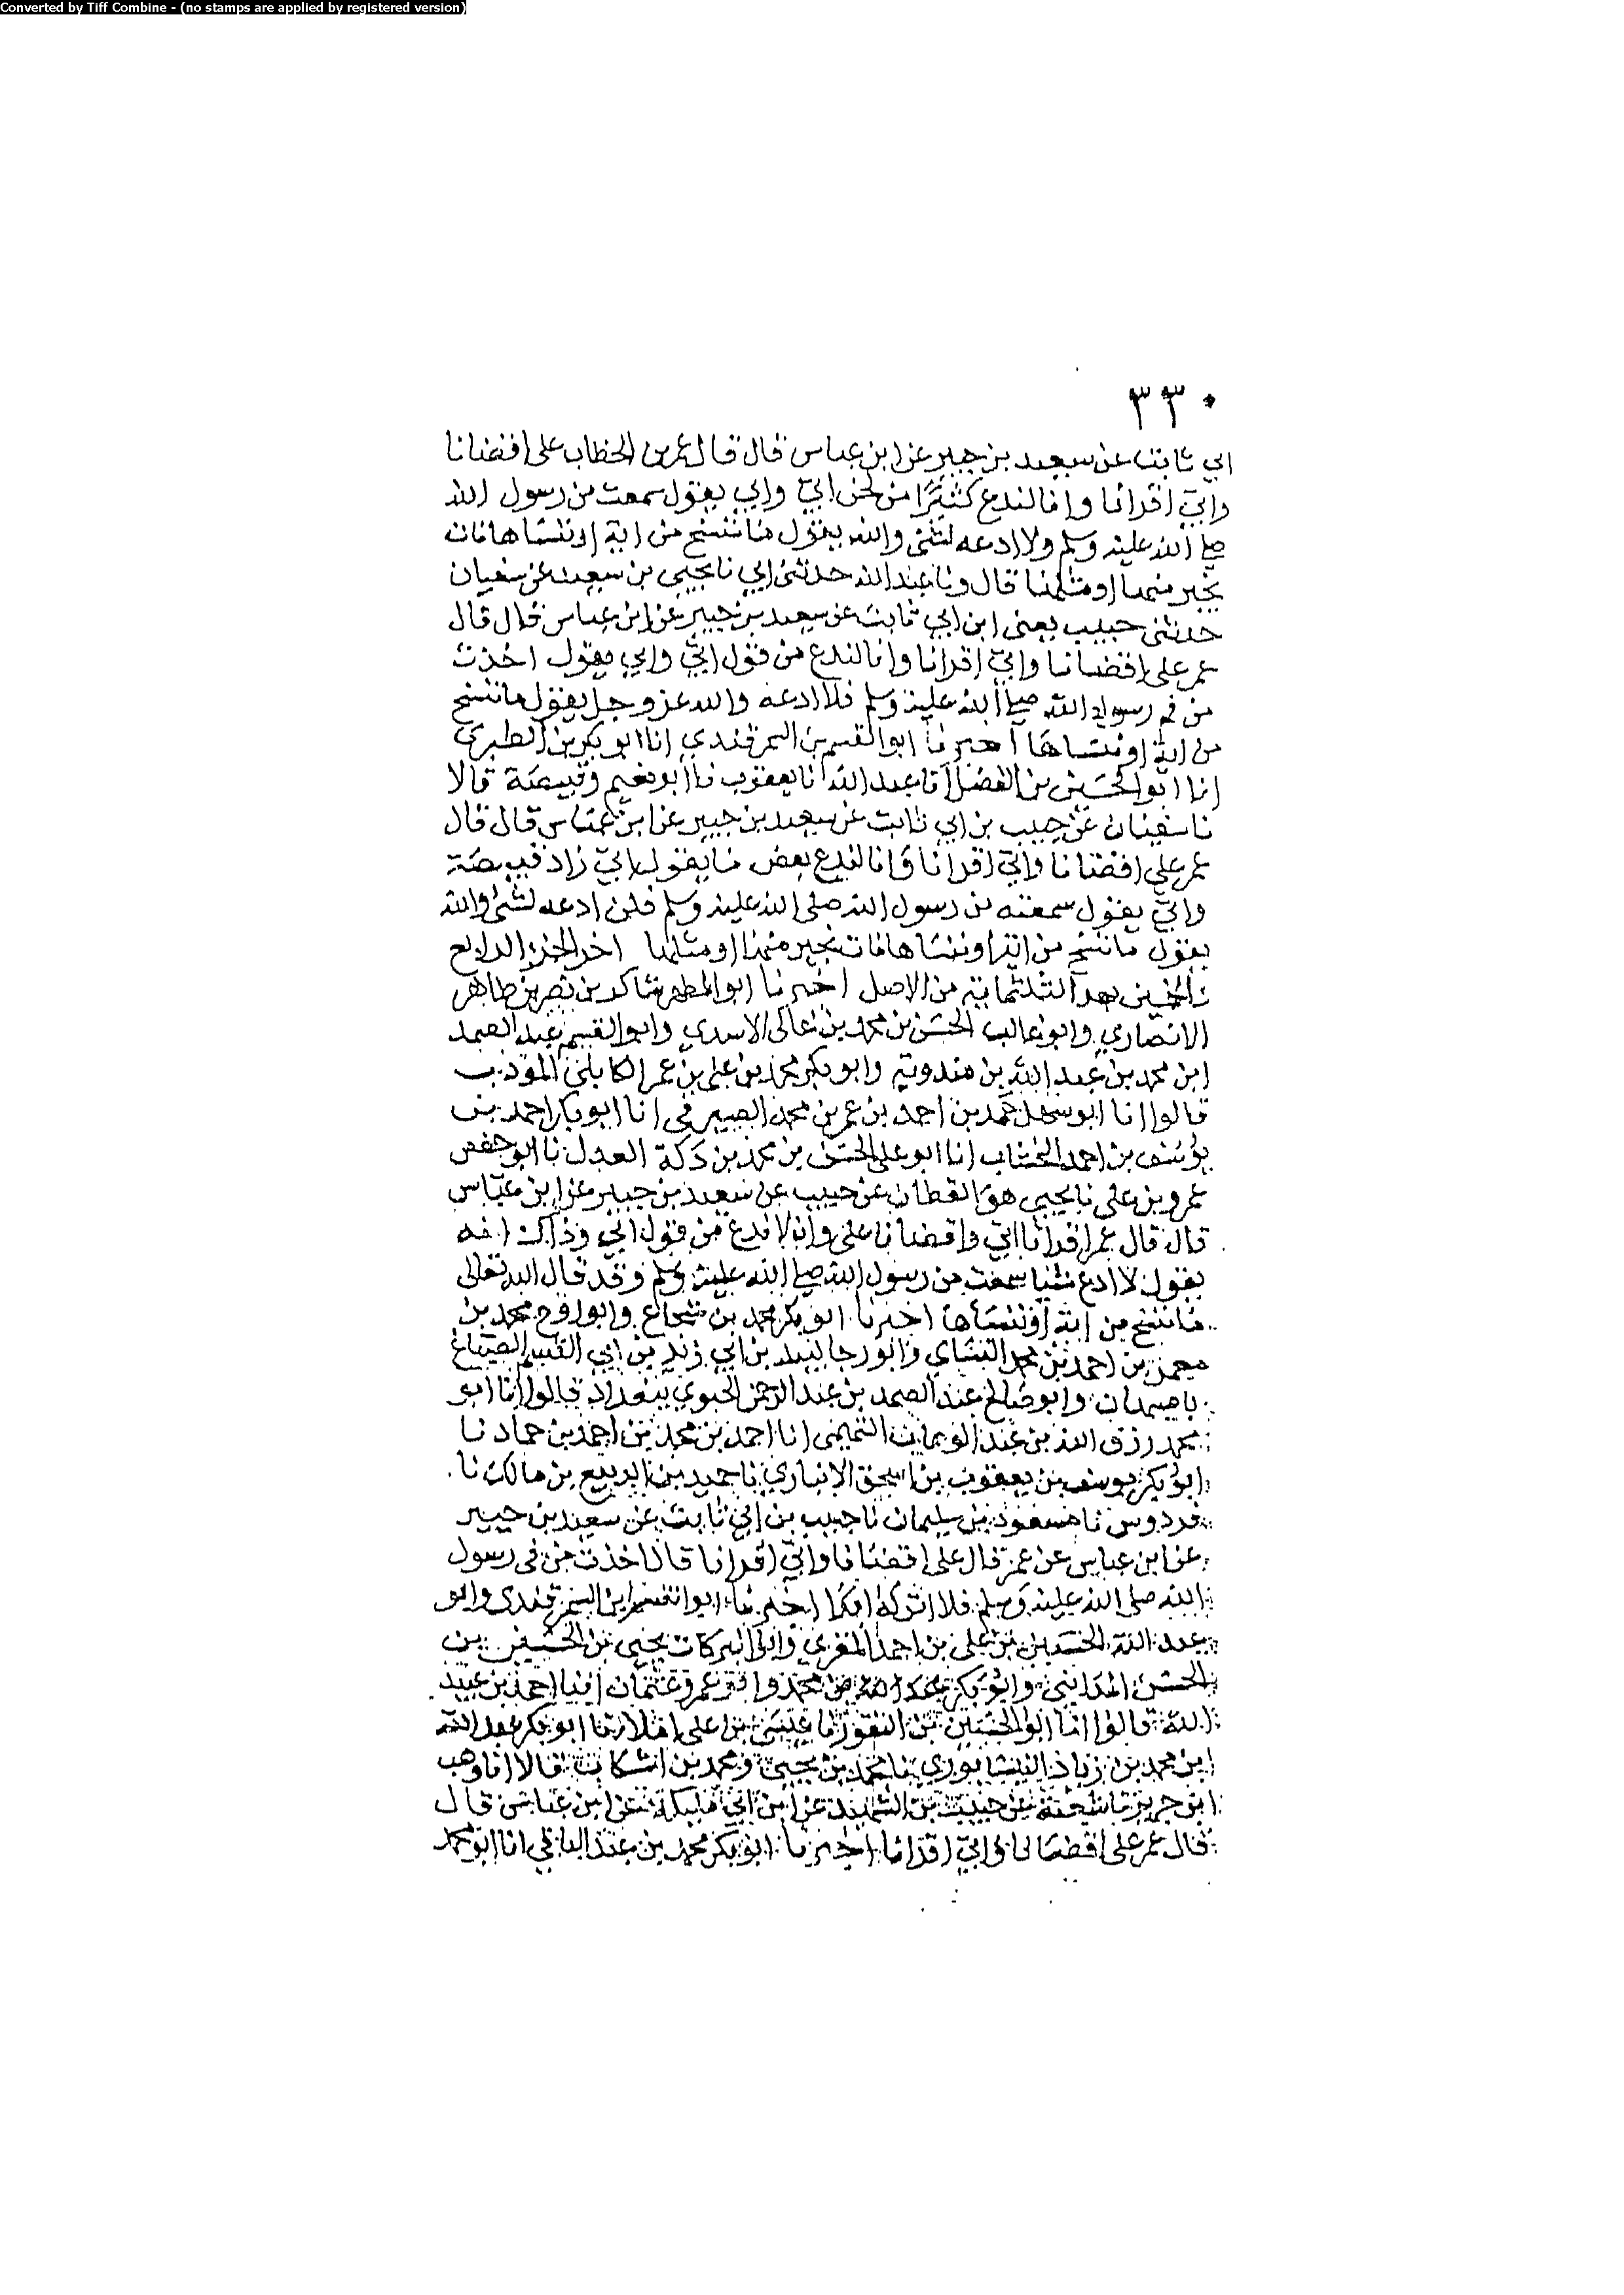 Converted by Tiff Combine - (no stamps are applied by registered version)
٣٣٠
ابي ثابت عن سعيد بن جبير عن ابن عباس قال قال عمر بن الخطاب على اقضانا
وابي اقرانا وانا لندع كثيرا من لحن ابي وابي يقول سمعت من رسول الله
صلى الله عليه وسلم ولا ادعه لشى والله يقول ما ننسخ من اية او ننساها نات
بخير منها او مثلها قال ونا عبد الله حدثنى ابي نا يحيى بن سعيد عن سفيان
حدثنى حبيب يعنى ابن ابي ثابت عن سعيد بن جبير عن ابن عباس قال قال
عمر على اقضانا وابي اقرانا وانا لندع من قول ابي وابي يقول اخذت
من فم رسول الله صلى الله عليه وسلم فلا ادعه والله عز وجل يقول ما ننسخ
من اية او ننساها اخبرنا ابو القسم بن السمرقندي انا ابو بكر بن الطبرى
انا ابو الحسين بن الفضل انا عبد الله نا يعقوب نا ابو نعيم وقبيصة قالا
نا سفيان عن حبيب بن ابي ثابت عن سعيد بن جبير عن ابن عباس قال قال
عمر على اقضانا وابي اقرانا وانا لندع بعض ما يقول ابي زاد قبيصة
وابي يقول سمعته من رسول الله صلى الله عليه وسلم فلن ادعه لشى والله
يقول ما ننسخ من اية او ننساها نات بخير منها او مثلها اخر الجزء الرابع
والخمسين بعد الثلثماية من الاصل اخبرنا ابو المطهر شاكر بن نصر بن طاهر
الانصاري وابو غالب الحسن بن محمد بن عالى الاسدي وابو القسم عبد الصمد
ابن محمد بن عبد الله بن مندويه وابو بكر محمد بن على بن عمر الكابلى المؤدب
قالوا انا ابو سهل حمد بن احمد بن عمر بن محمد الصيرفى انا ابو بكر احمد بن
يوسف بن احمد الخشاب انا ابو على الحسن بن محمد بن دكة العدل نا ابو حفص
عمرو بن على نا يحيى هو القطان عن حبيب عن سعيد بن جبير عن ابن عباس
قال قال عمر اقرانا ابي واقضانا على وانا لا ندع من قول ابي وذاك انه
يقول لا ادع شيا سمعت من رسول الله صلى الله عليه وسلم وقد قال الله تعالى
ما ننسخ من اية او ننساها اخبرنا ابو بكر محمد بن شجاع وابو روح محمد بن
معمر بن احمد بن محمد وابو رجا لبيد بن ابي زيد بن ابي القسم الصباغ
باصبهان وابو صالح عبد الصمد بن عبد الرحمن الحنوي ببغداد قالوا انا ابو
محمد رزق الله بن عبد الوهاب التميمى انا احمد بن محمد بن احمد بن حماد نا
ابو بكر يوسف بن يعقوب بن اسحق الانباري نا حميد بن الربيع بن مالك نا
فردوس نا مسعود بن سليمان نا حبيب بن ابي ثابت عن سعيد بن جبير
عن ابن عباس عن عمر قال على اقضانا وابي اقرانا قال اخذت من فى رسول
الله صلى الله عليه وسلم فلا اتركه ابدا اخبرنا ابو القسم ابن السمرقندى وابو
عبد الله الحسين بن على بن احمد المقري وابو البركات يحيى بن الحسين بن
الحسن المداينى وابو بكر محمد وابو عمرو عثمان ابنا احمد بن عبيد
الله قالوا انا ابو الحسين بن النقور نا عيسى بن على املا نا ابو بكر عبد الله
ابن محمد بن زياد النيسابوري نا محمد بن يحيى ومحمد بن اشكاب قالا نا وهب
ابن جرير نا شعبة عن حبيب بن الشهيد عن ابن ابي مليكة عن ابن عباس قال
قال عمر على اقضانا وابي اقرانا اخبرنا ابو بكر محمد بن عبد الباقي انا ابو محمد